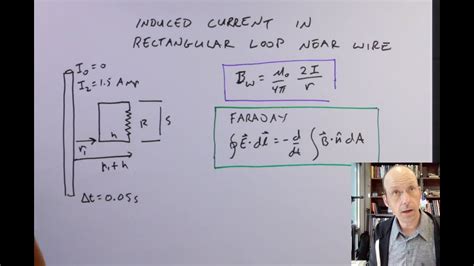 INDUCED CURRENT IN
RECTANGULAR LOOP NEAR WIRE
I₀ = 0
I₂ = 1.5 Amp
h
R
S
r₁
r₁ + h
Δt = 0.05 s
B⃗w = μ₀/4π 2I/r
FARADAY
∮ E⃗ · dl⃗ = − d/dt ∫ B⃗ · n̂ dA